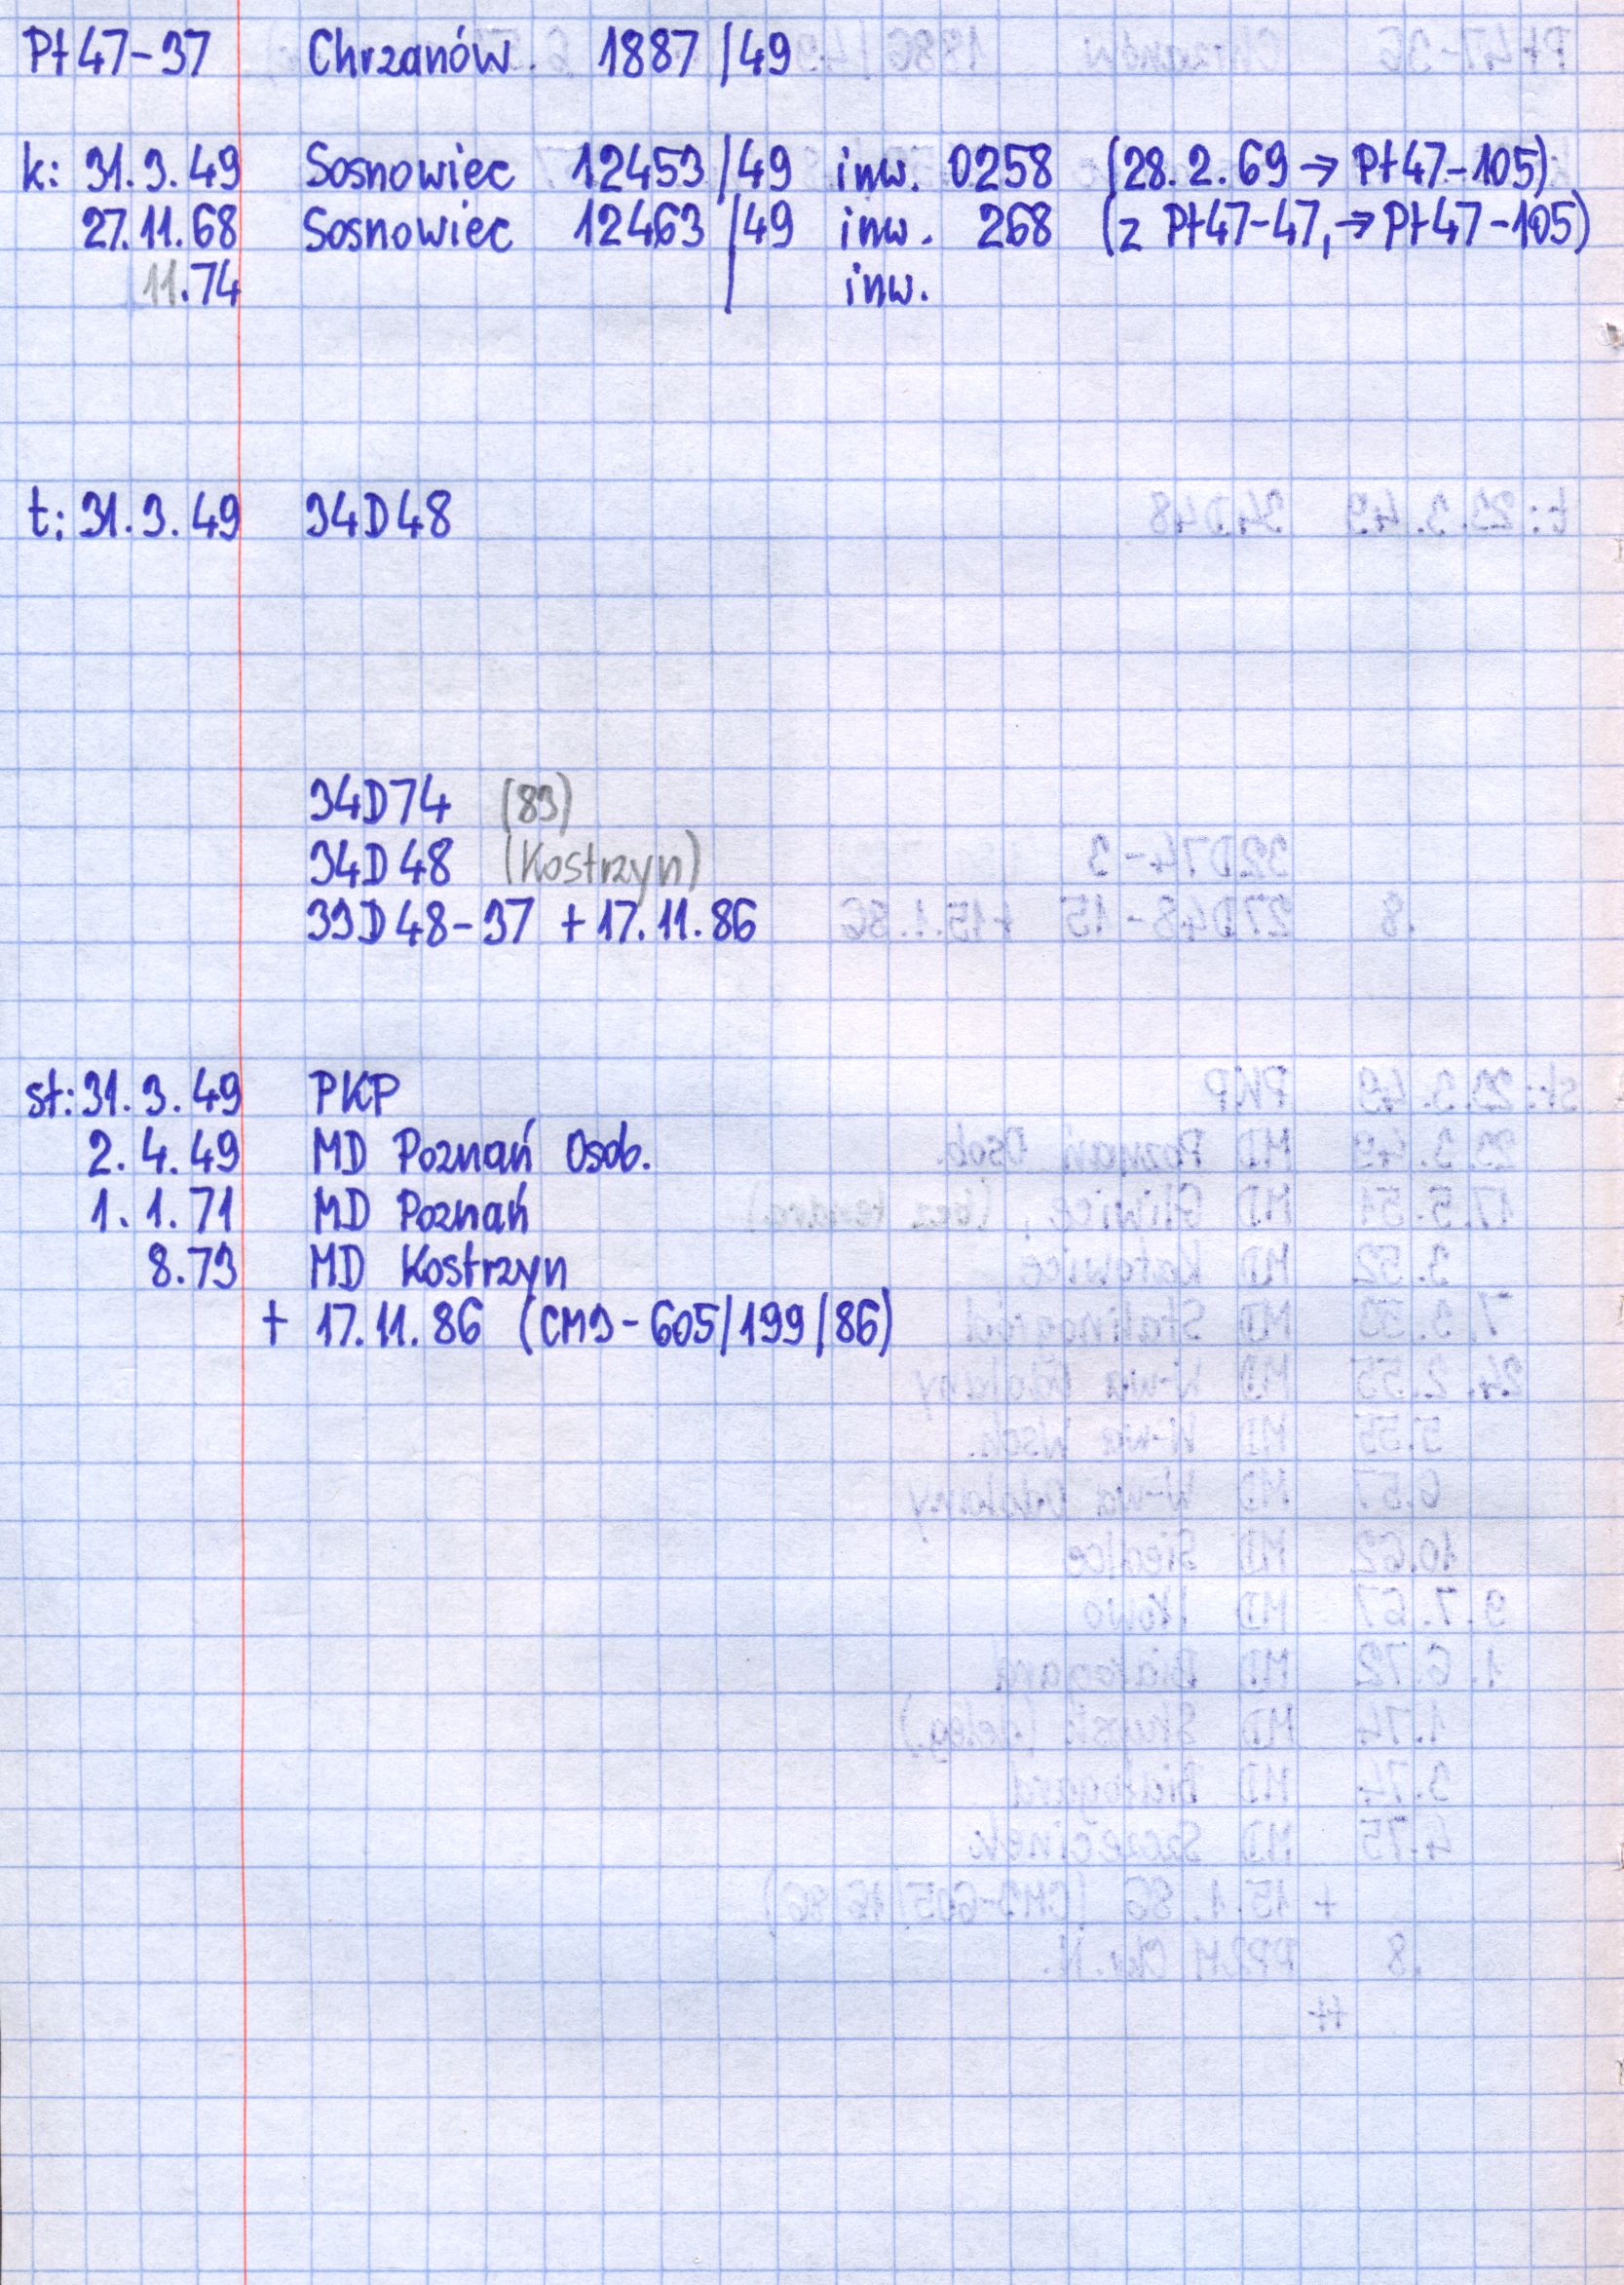 Pt47-37 Chrzanów 1887/49
k: 31.3.49 Sosnowiec 12453/49 inw. 0258 (28.2.69 → Pt47-105)
27.11.68 Sosnowiec 12463/49 inw. 268 (z Pt47-47, → Pt47-105)
11.74 / inw.
t: 31.3.49 34D48
34D74 (83)
34D48 (Kostrzyn)
33D48-37 + 17.11.86
st: 31.3.49 PKP
2.4.49 MD Poznań Osob.
1.1.71 MD Poznań
8.73 MD Kostrzyn
+ 17.11.86 (CM3-605/199/86)